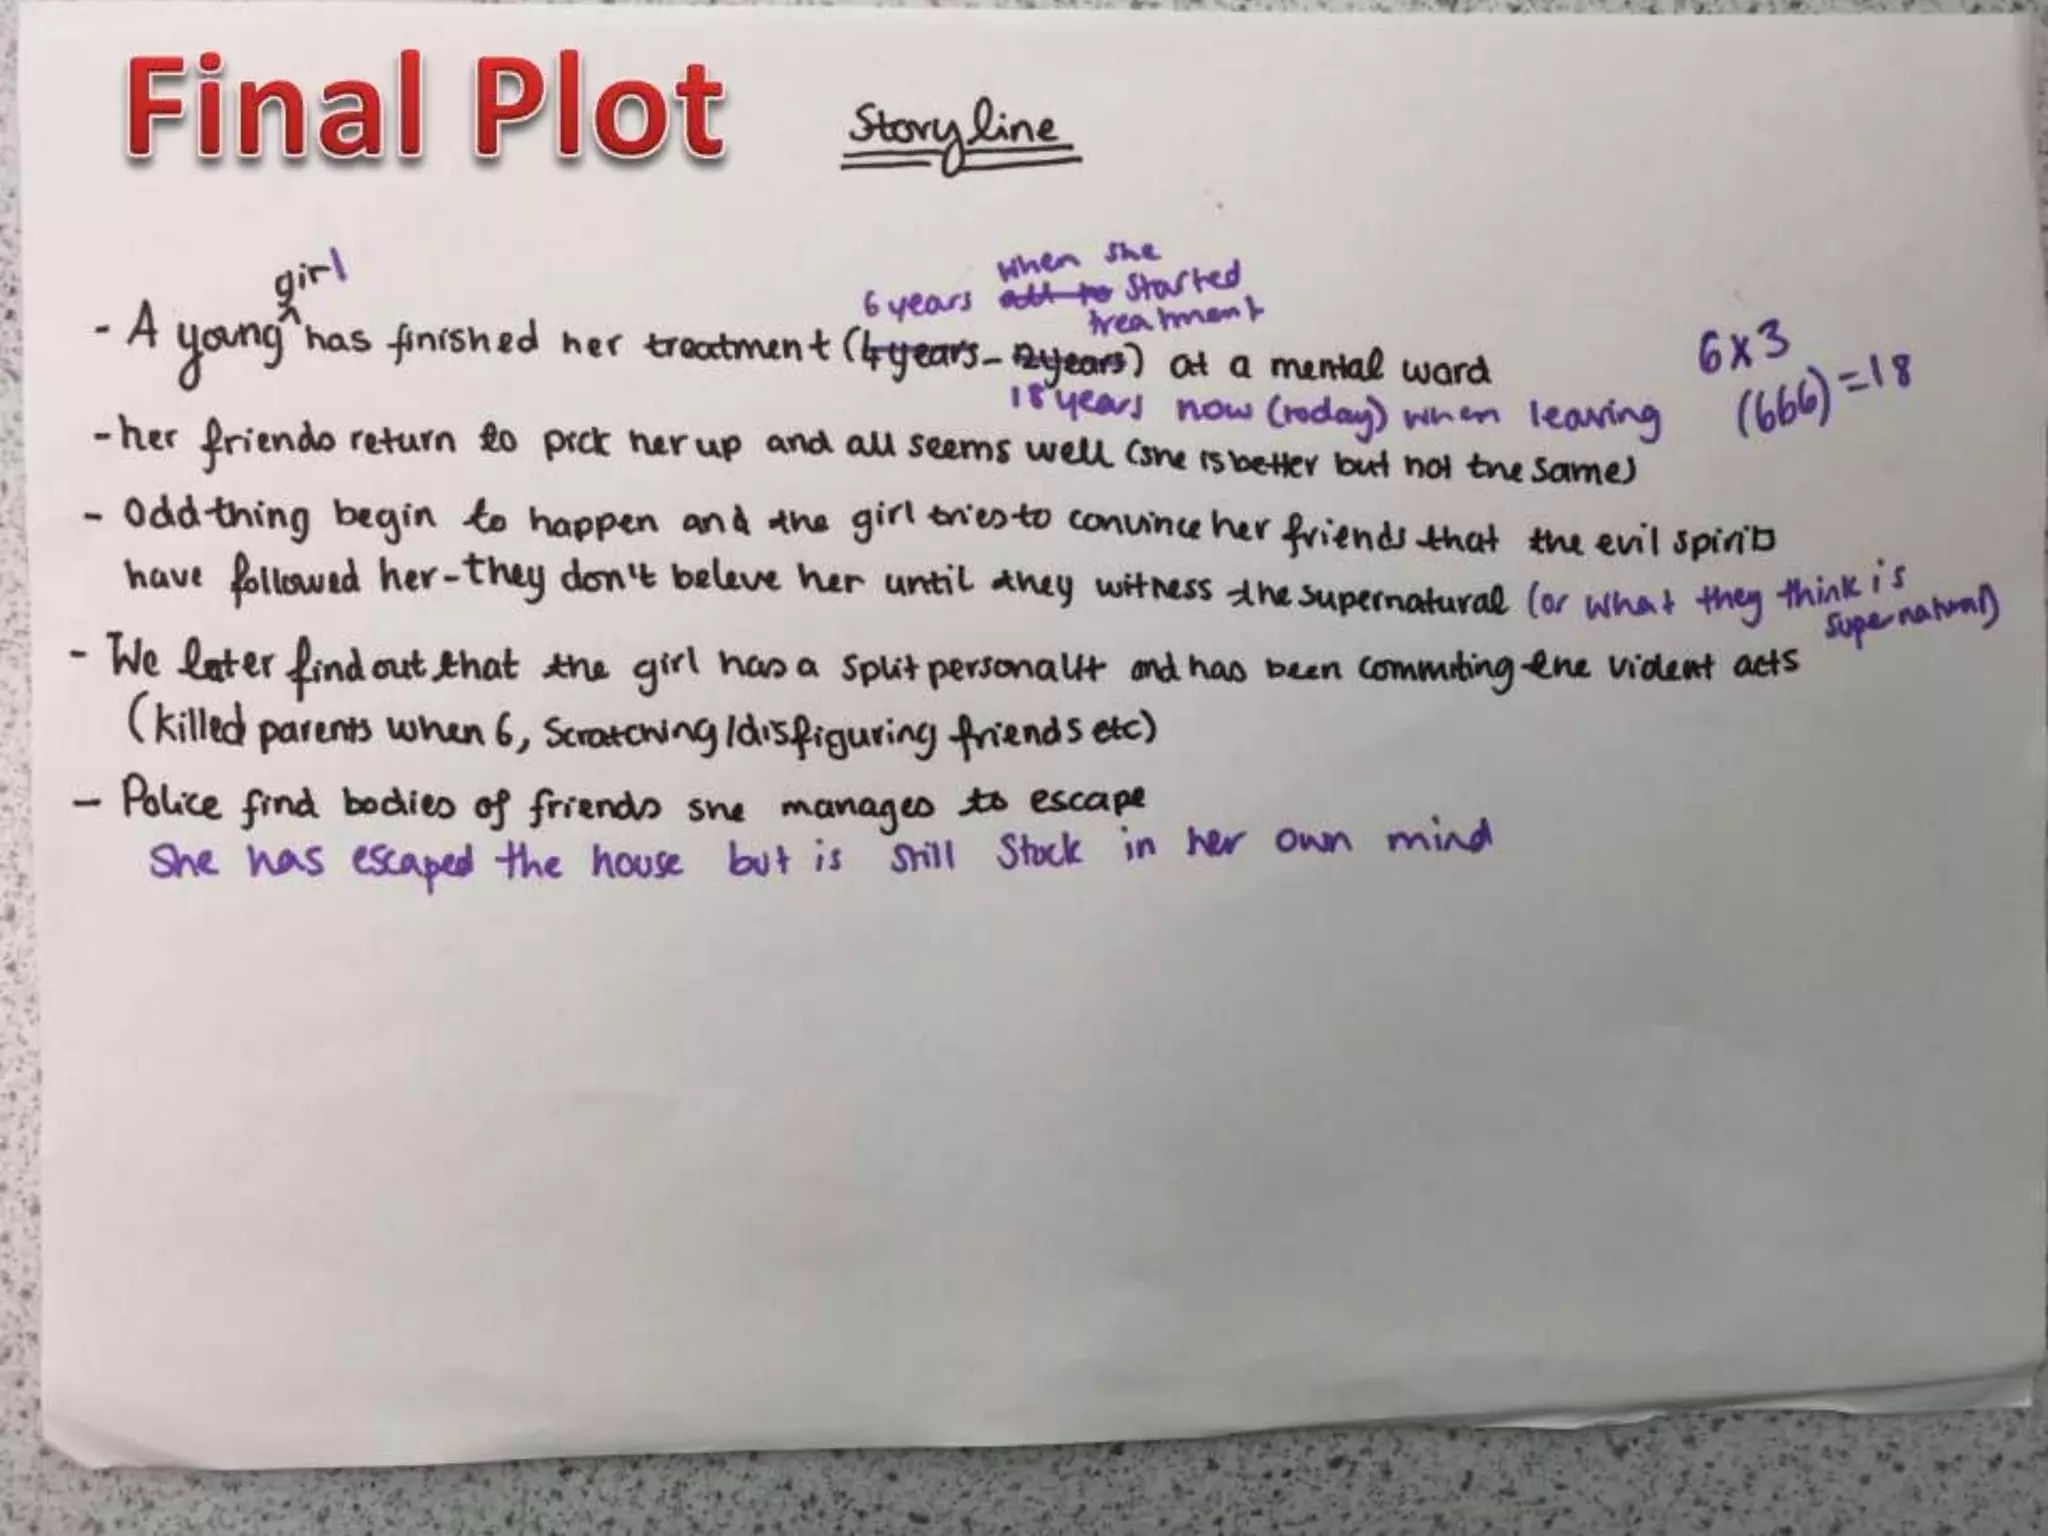 Final Plot
Storyline
girl
when she
6 years all to started
treatment
- A young has finished her treatment (4 years - 12 years) at a mental ward
18 years now (today) when leaving
6x3
(666) = 18
- her friends return to pick her up and all seems well (she is better but not the same)
- Odd thing begin to happen and the girl tries to convince her friends that the evil spirits
have followed her - they don't beleve her until they witness the supernatural (or what they think is
supernatural)
- We later find out that the girl has a split personalit and has been commiting the violent acts
(killed parents when 6, scratching/disfiguring friends etc)
- Police find bodies of friends she manages to escape
She has escaped the house but is still stock in her own mind